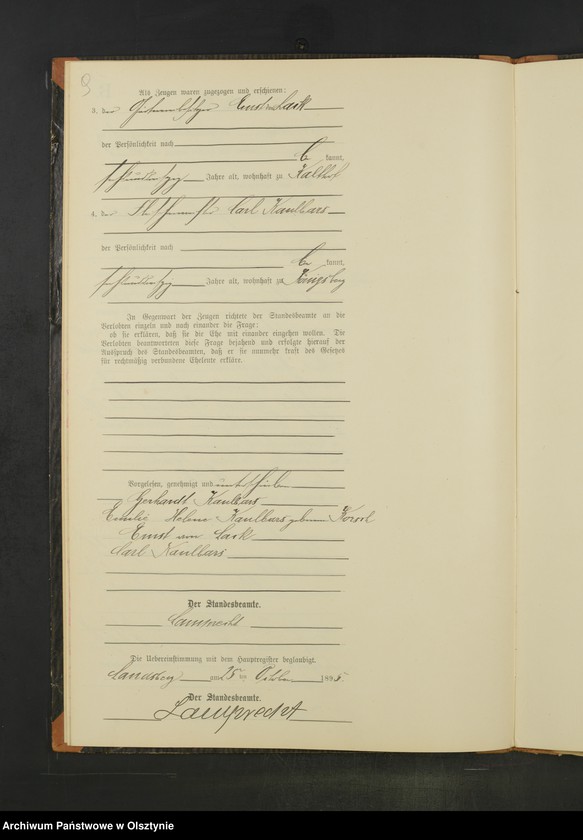 9
Als Zeugen waren zugezogen und erschienen:
3. der Gutsbesitzer Ernst von Sack
der Persönlichkeit nach
be kannt,
Jahre alt, wohnhaft zu Kalthof
4. der Carl Kaulbars
der Persönlichkeit nach
be kannt,
Jahre alt, wohnhaft zu
In Gegenwart der Zeugen richtete der Standesbeamte an die
Verlobten einzeln und nach einander die Frage:
ob sie erklären, daß sie die Ehe mit einander eingehen wollen. Die
Verlobten beantworteten diese Frage bejahend und erfolgte hierauf der
Ausspruch des Standesbeamten, daß er sie nunmehr kraft des Gesetzes
für rechtmäßig verbundene Eheleute erkläre.
Vorgelesen, genehmigt und unterschrieben
Gerhardt Kaulbars
Emilie Helene Kaulbars geborene
Ernst von Sack
Carl Kaulbars
Der Standesbeamte.
Lamprecht
Die Uebereinstimmung mit dem Hauptregister beglaubigt.
Landsberg am 25 ten October 1895
Der Standesbeamte.
Lamprecht
Archiwum Państwowe w Olsztynie